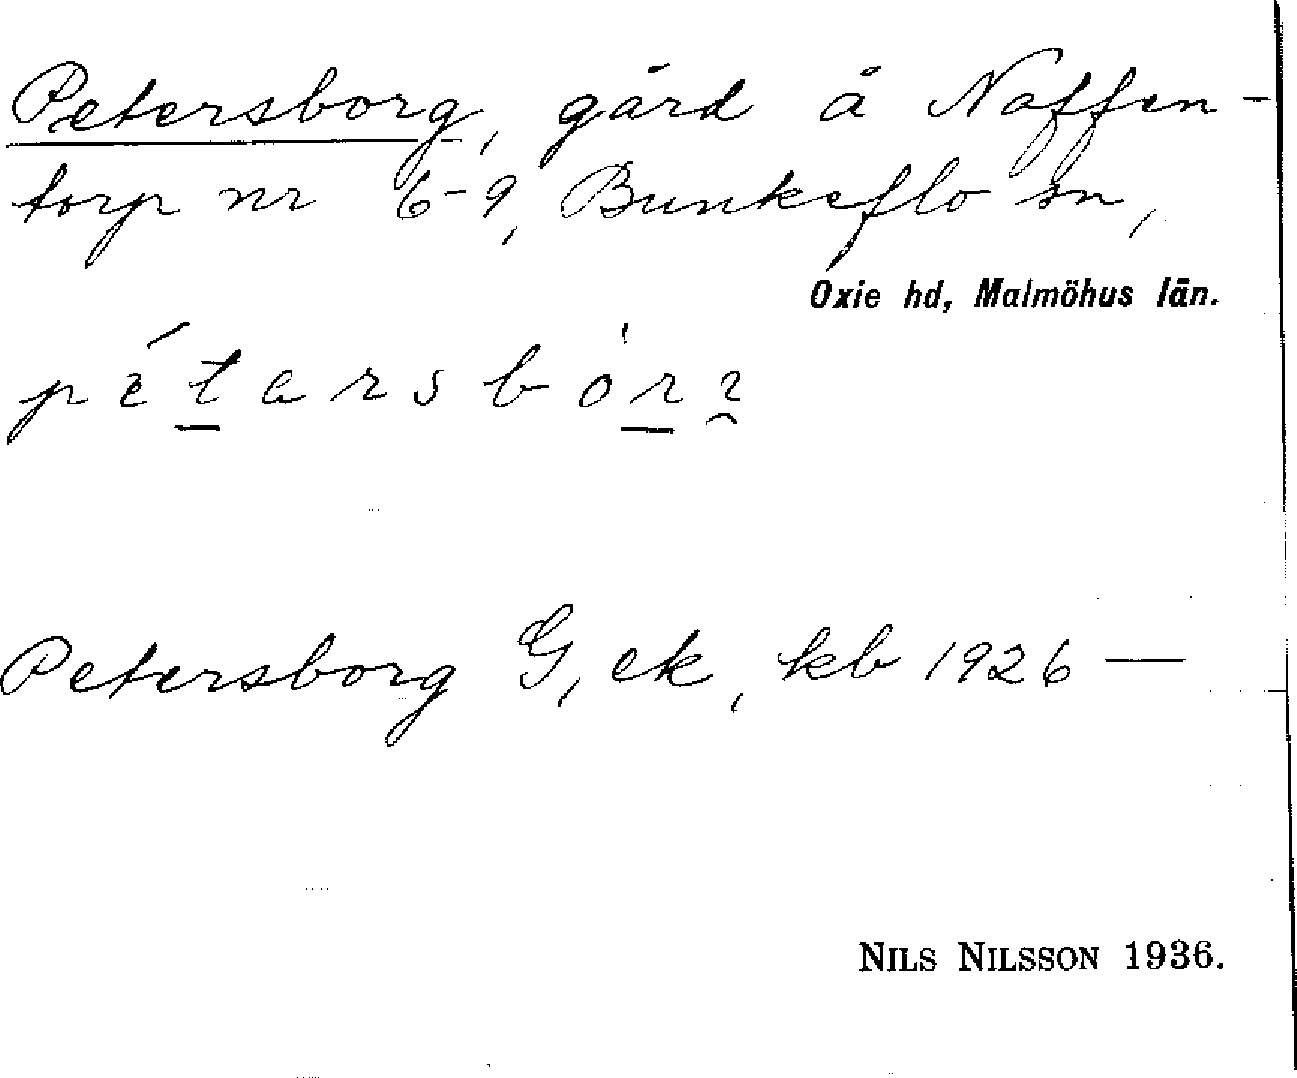 Petersborg, gård å Naffen-
torp nr 6-9, Bunkeflo sn,
Oxie hd, Malmöhus län.
Petersborg G, ek, kb 1926 —
NILS NILSSON 1936.